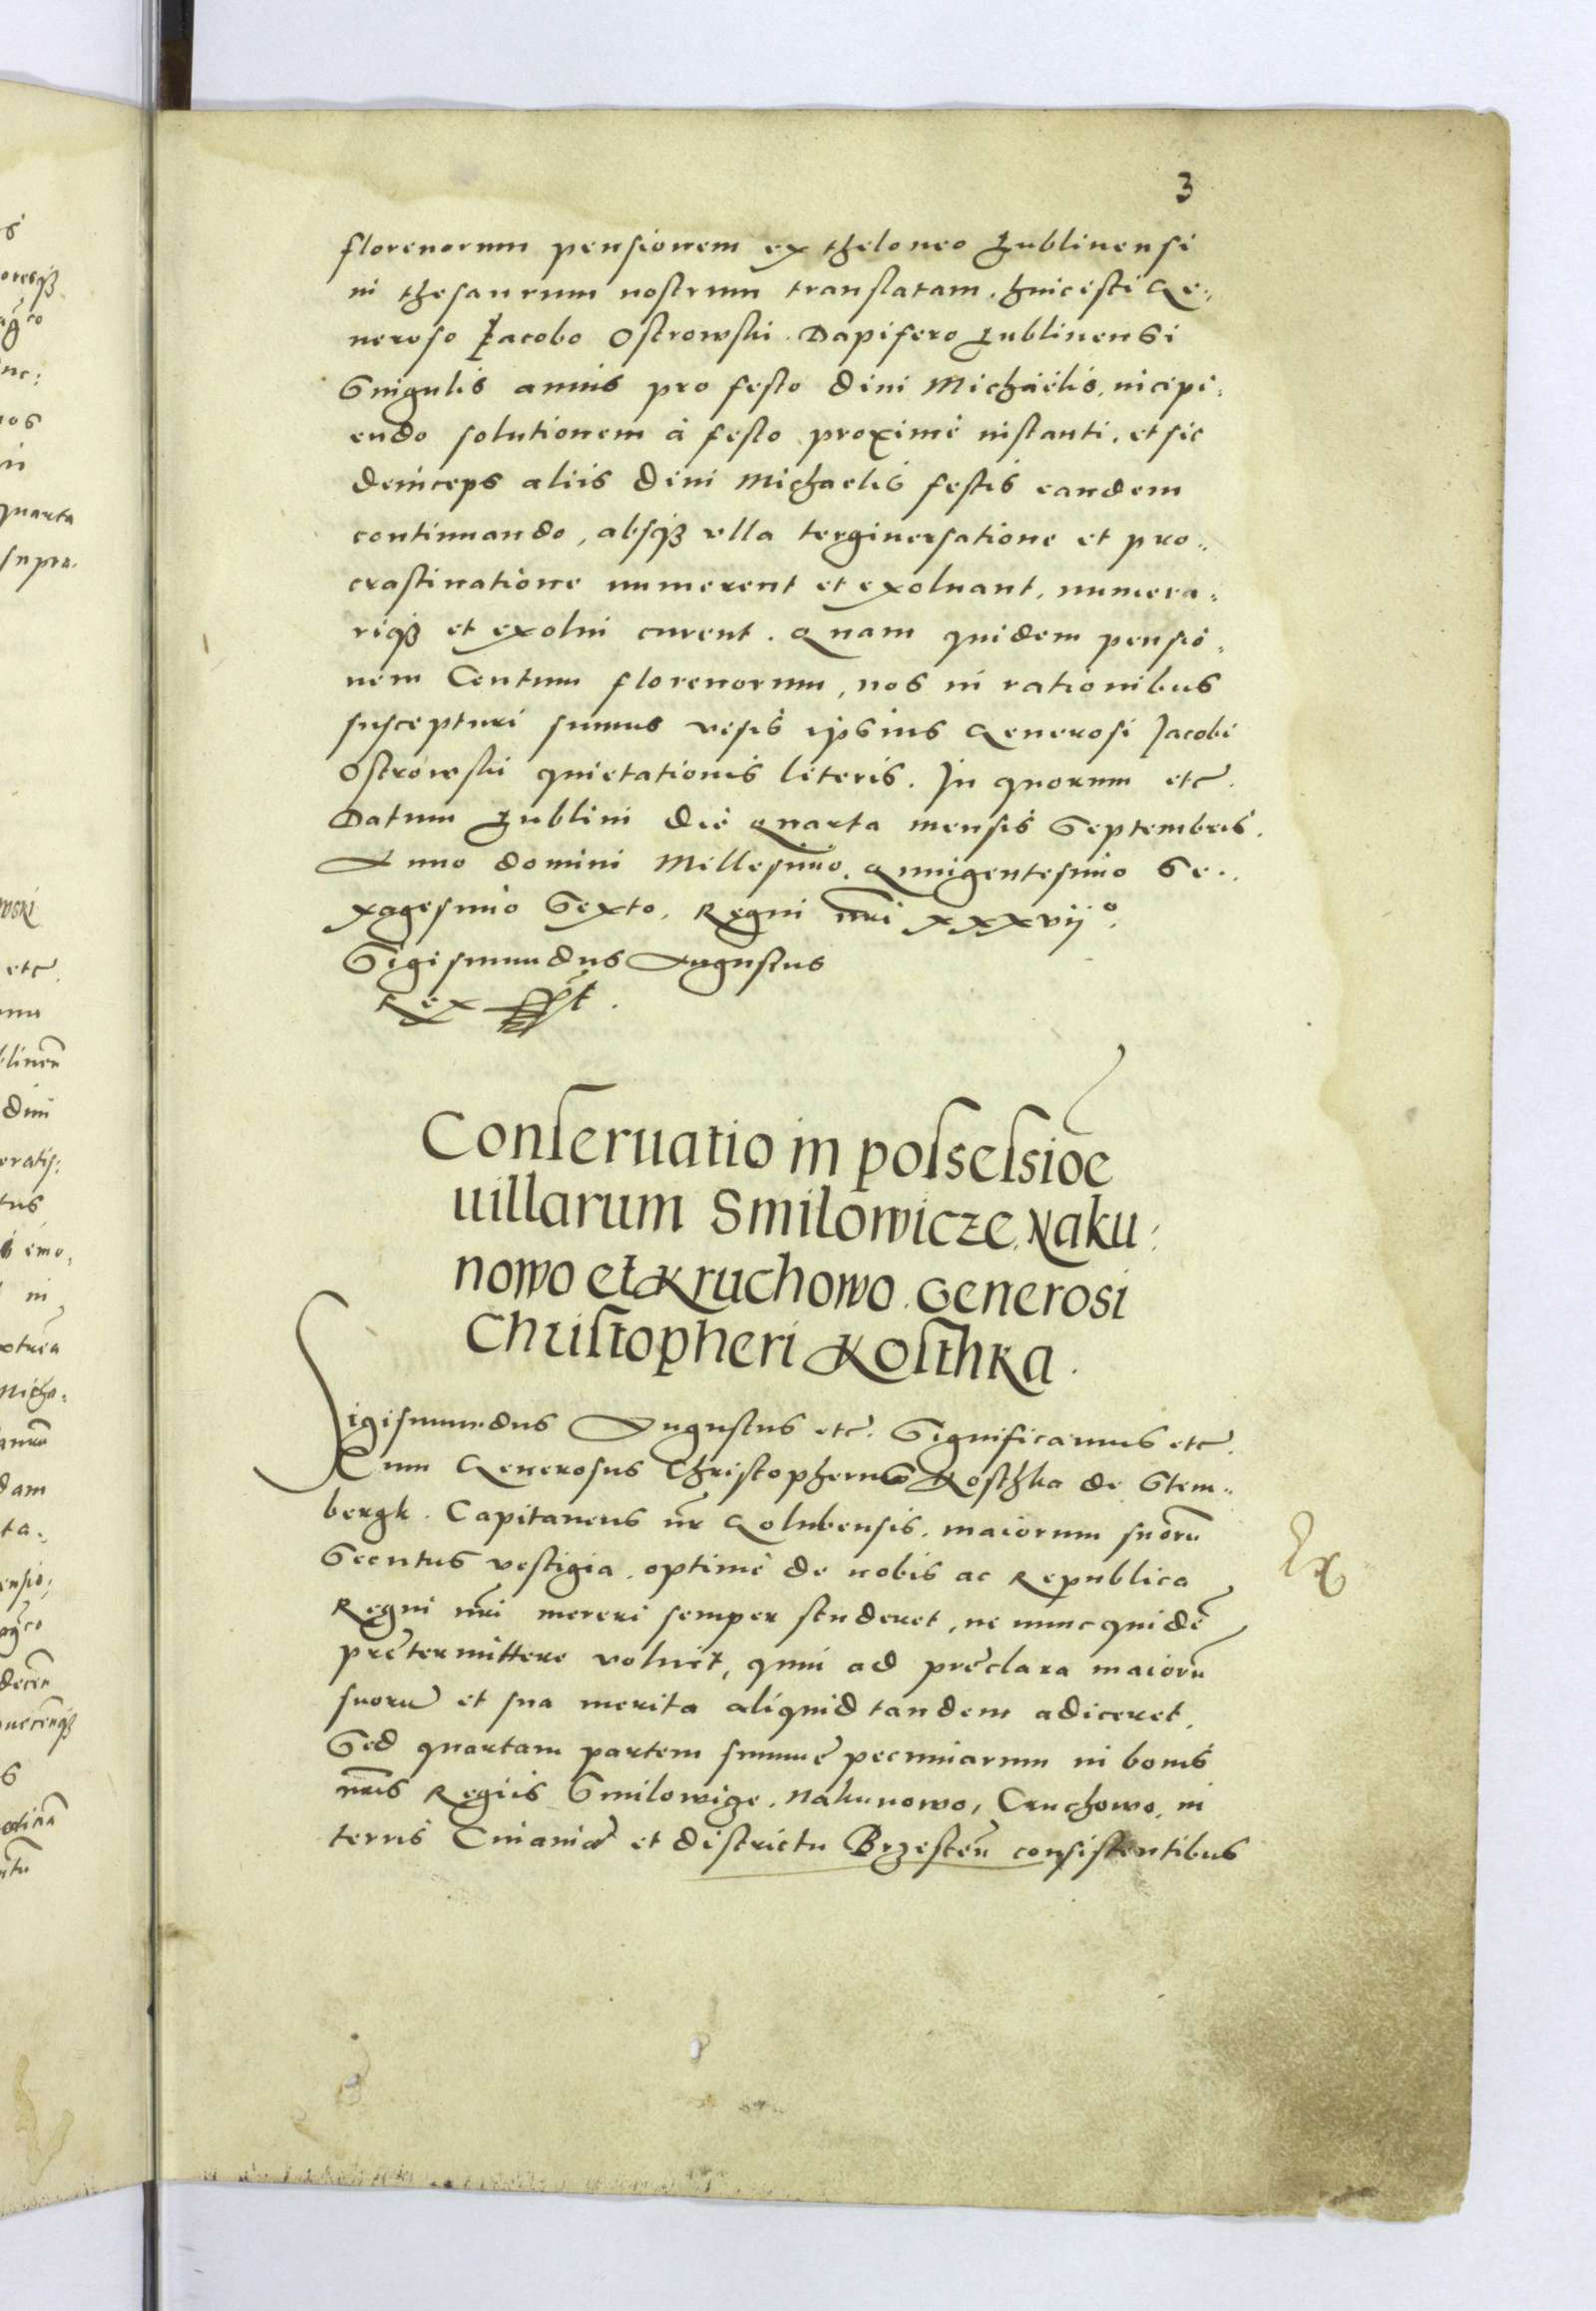 3
florenorum pensionem ex theloneo Lublinensi
in thesaurum nostrum translatam, huicesti Ge„
neroso Jacobo Ostrowski Dapifero Lublinensi
Singulis annis pro festo divi Michaëlis, incipi„
endo solutionem à festo proximè instanti, et sic
deinceps aliis divi Michaelis festis eandem
continuando, absqꝫ ulla tergiuersatione et pro„
crastinatione numerent et exoluant, numera„
riqꝫ et exolui curent. Quam quidem pensio„
nem Centum florenorum, nos in rationibus
suscepturi sumus visis ipsius Generosi Jacobi
Ostrowski quietationis literis. In quorum etc.
Datum Lublini die Quarta mensis Septembris.
Anno domini Millesimo, Quingentesimo Se„
xagesimo Sexto, Regni nr̃i xxxvijº.
Sigismundus Augustus
Rex
Conſeruatio in poſseſsiõe
uillarum Smilowicze, Naku„
nowo et Kruchowo, Generosi
Chriſtopheri Koſthka.
Sigismundus Augustus etc. Significamus etc.
Cum Generosus Christopherus Kosthka de Stem„
bergk. Capitaneus nr̃ Golubensis, maiorum suorũ
Secutus vestigia, optimè de nobis ac Republica
Regni nr̃i mereri semper studeret, ne nunc quidẽ
prętermittere voluit, quin ad pręclara maiorũ
suorũ et sua merita aliquid tandem adiceret.
Sed quartam partem summę pecuniarum in bonis
nr̃is Regiis Smilowize, Nakunowo, Cruchowo, in
terris Cuiauię et districtu Brzesteñ consistentibus